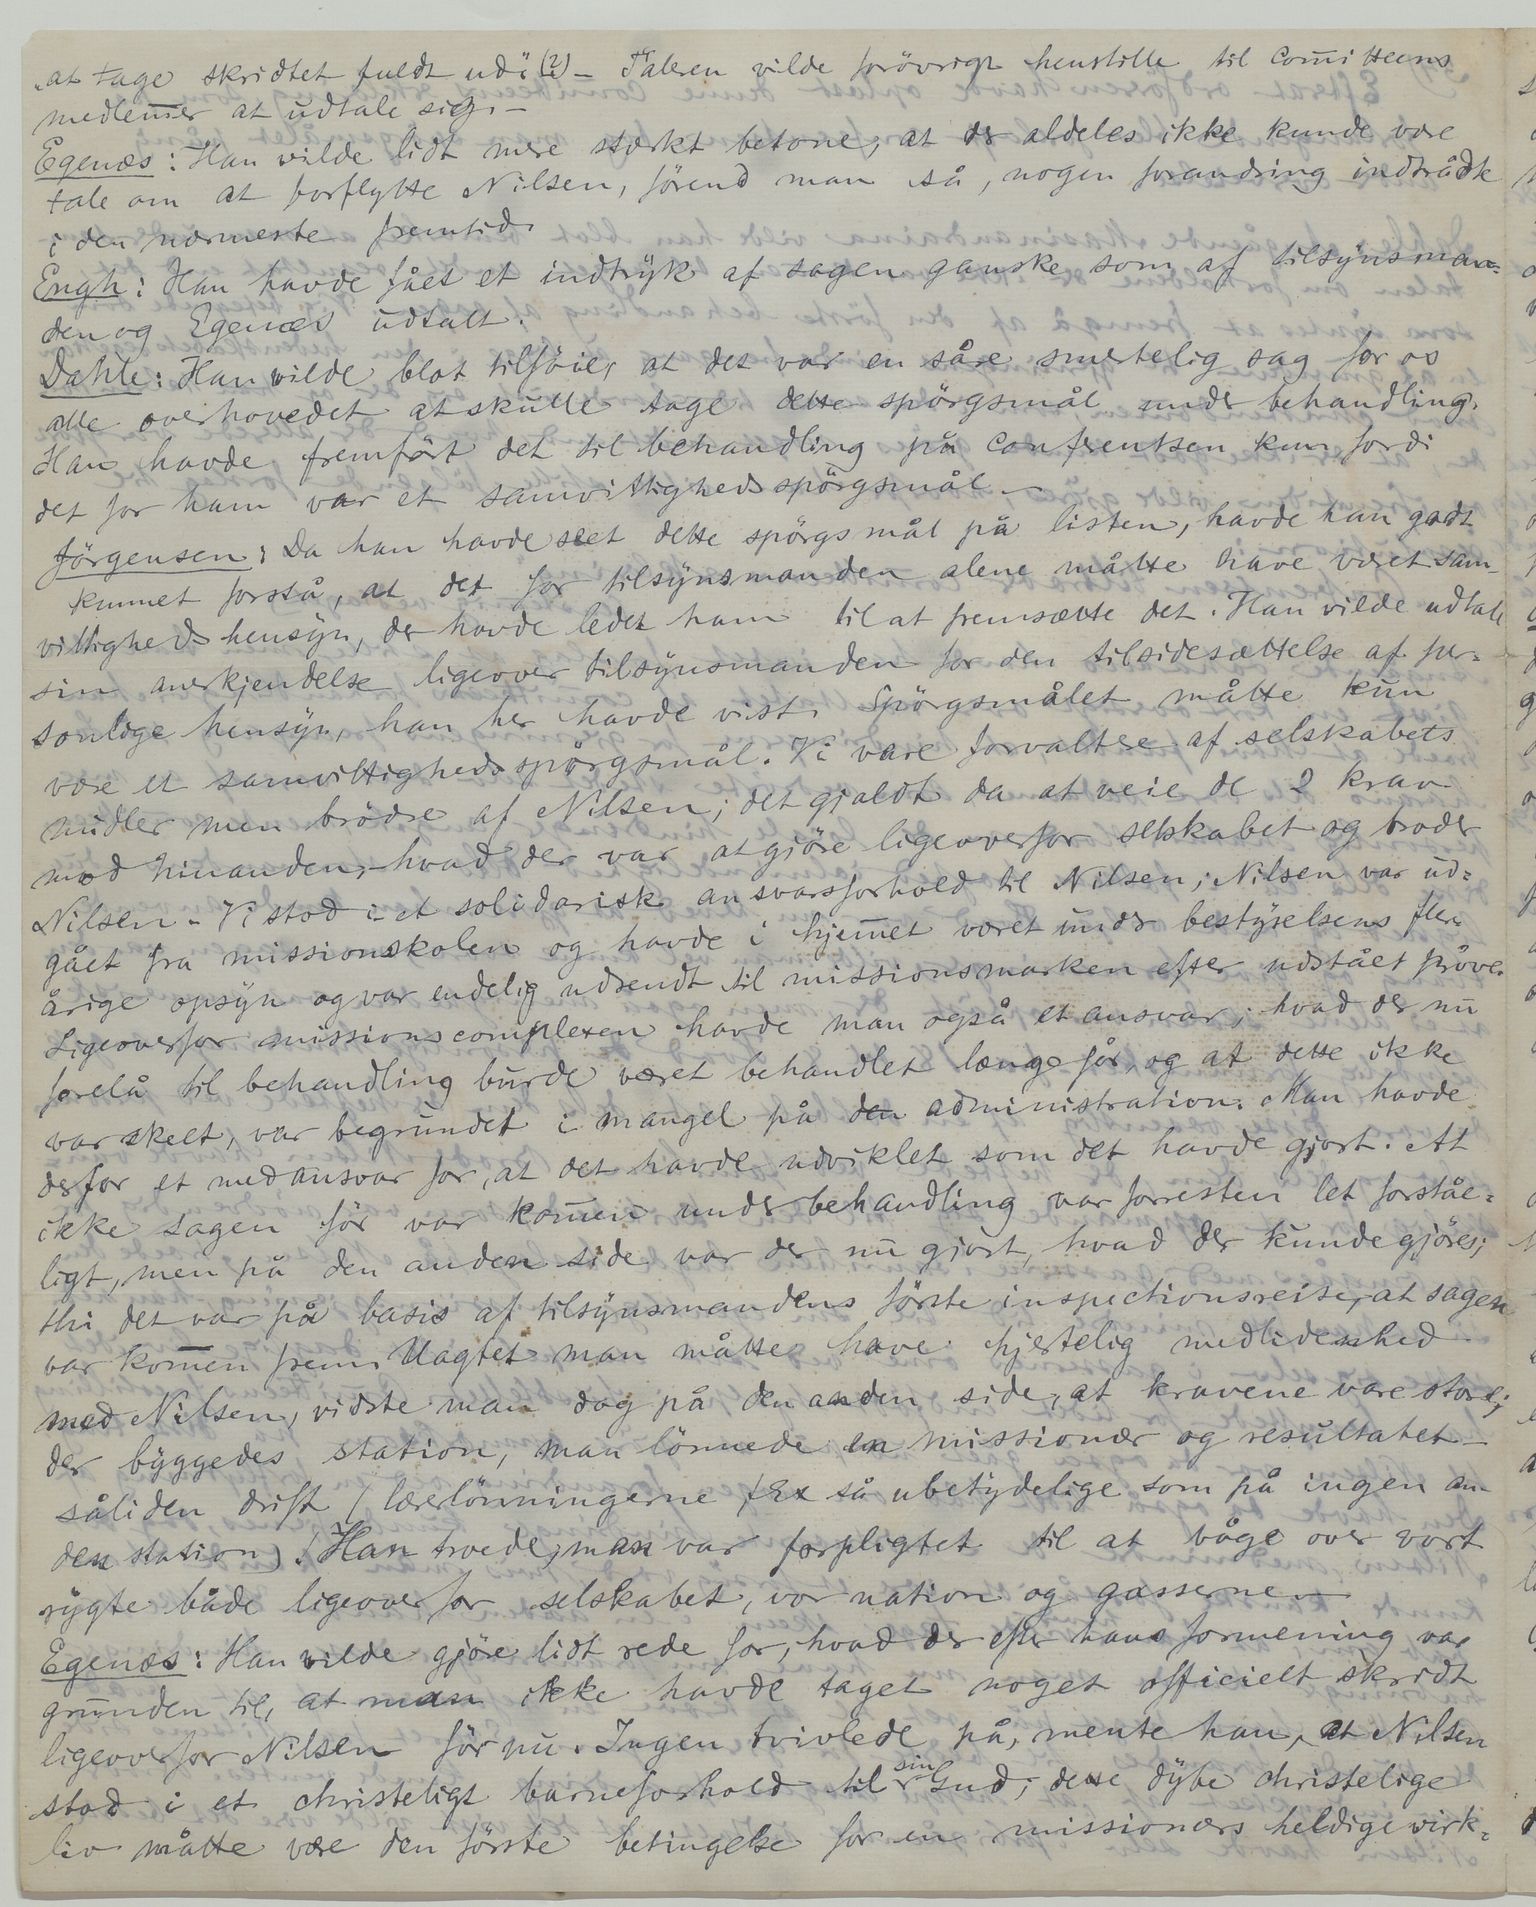 at tage skridtet fuldt ud i (2) – Taleren vilde forövrigt henstille til comitteens
medlem̅er at udtale sig. –
Egenæs: Han vilde lidt mere stærkt betone, at der aldeles ikke kunde være
tale om at forflytte Nilsen, förend man så, nogen forandring indtrådte
i den nærmeste fremtid.
Engh: Han havde fået et indtryk af sagen ganske som af tilsynsman-
den og Egenæs udtalt.
Dahle: Han vilde blot tilföie, at det var en såre smertelig sag for os
alle overhovedet at skulle tage dette spörgsmål under behandling.
Han havde fremfört det til behandling på confrentsen kun fordi
det for ham var et samvittighedsspörgsmål. –
Jörgensen: Da han havde seet dette spörgsmål på listen, havde han godt
kunnet forstå, at det for tilsynsmanden alene måtte have været sam-
vittighedshensyn, der havde ledet ham til at fremsætte det. Han vilde udtale
sin anerkjendelse ligeover tilsynsmanden for den tilsidesættelse af per-
sonlige hensyn, han her havde vist. Spörgsmålet måtte kun
være et samvittighedsspörgsmål. Vi vare forvaltere af selskabets
midler men brödre af Nilsen; det gjaldt da at veie de 2 krav
mod hinanden, hvad der var at gjöre ligeoverfor selskabet og broder
Nilsen. Vi stod i et solidarisk ansvarsforhold til Nilsen; Nilsen var ud-
gået fra missionskolen og havde i hjem̅et været under bestyrelsens fler-
årige opsyn og var endelig udsendt til missionsmarken efter udstået pröve.
Ligeoverfor missionscomplexen havde man også et ansvar; hvad der nu
forelå til behandling burde været behandlet længe för, og at dette ikke
var skeet, var begrundet i mangel på den administration. Man havde
derfor et medansvar for, at det havde udviklet som det havde gjort. At
ikke sagen för var kom̅en under behandling var forresten let forståe-
ligt, men på den anden side var der nu gjort, hvad der kunde gjöres;
thi det var på basis af tilsynsmandens förste inspectionsreise, at sagen
var kom̅en frem. Uagtet man måtte have hjertelig medlidenhed
med Nilsen, vidste man dog på den anden side, at kravene vare store;
der byggedes station, man lönnede en missionær og resultatet –
såliden drift (lærerlönningerne f Ex så ubetydelige som på ingen an-
den station). Han troede, man var forpligtet til at våge over vort
rygte både ligeoverfor selskabet, vor nation og gasserne –
Egenæs: Han vilde gjöre lidt rede for, hvad der efter hans formening var
grunden til, at man ikke havde taget noget officielt skridt
ligeoverfor Nilsen för nu. Ingen tvivlede på, mente han, at Nilsen
stod i et christeligt barneforhold til sin Gud; dette dybe christelige
liv måtte være den förste betingelse for en missionærs heldige virk-